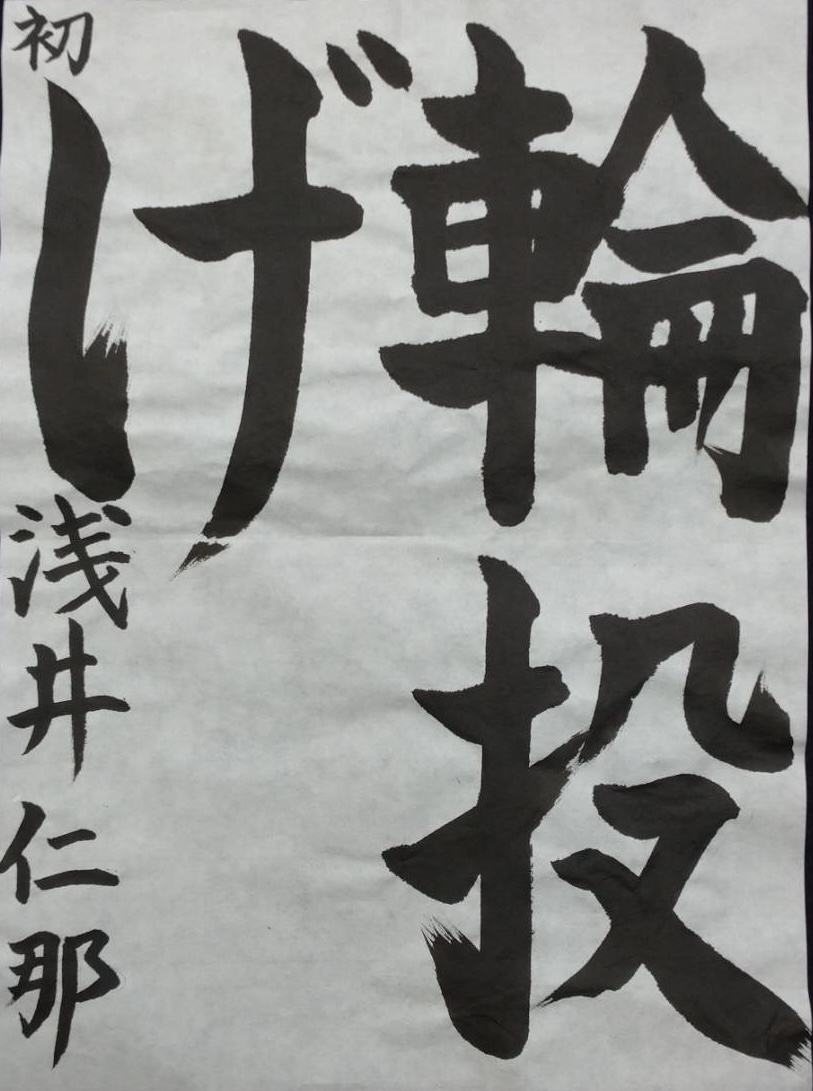 輪投
げ
初 浅井仁那